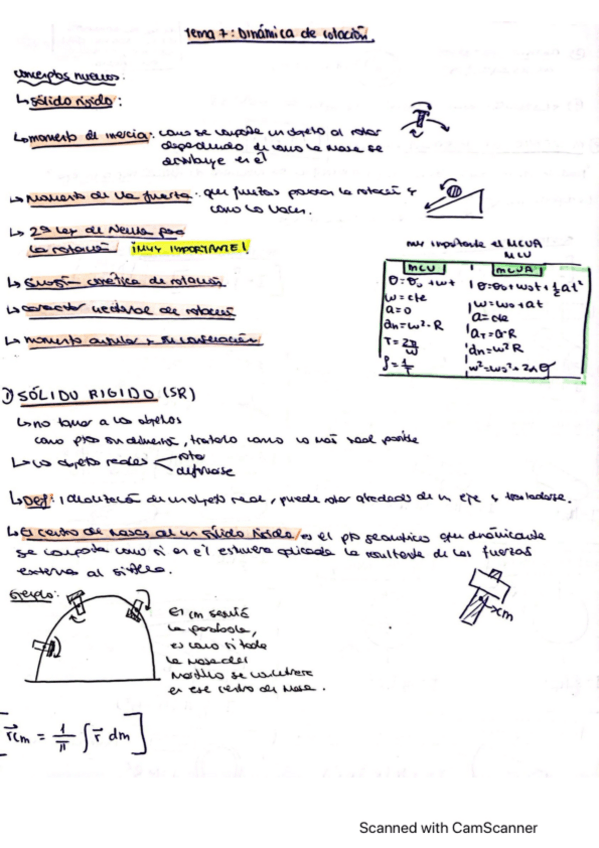 Tema 7: Dinámica de rotación
conceptos nuevos:
↳ sólido rígido:
↳ momento de inercia: como se comporta un objeto al rotar
dependiendo de como la masa se
distribuye en él
↳ Momento de una fuerza: que fuerzas provocan la rotación y
como lo hacen.
↳ 2ª Ley de Newton para
la rotación ¡MUY IMPORTANTE!
↳ Energía cinética de rotación
↳ caracter vectorial de rotación
↳ momento angular y su conservación
muy importante el MCUA
MCU
MCU
θ = θ₀ + ωt
ω = cte
a = 0
an = ω²·R
T = 2π/ω
f = 1/T
MCUA
θ = θ₀ + ω₀t + ½αt²
ω = ω₀ + αt
α = cte
aT = α·R
an = ω²·R
ω² = ω₀² + 2αθ
1) SÓLIDO RIGIDO (SR)
↳ no tomar a los objetos
como ptos sin dimensión, tratarlo como lo más real posible
↳ Los objetos reales < rotar
deformarse
↳ Def: idealización de un objeto real, puede rotar alrededor de un eje y trasladarse.
↳ El centro de masas de un sólido rígido es el pto geométrico que dinámicamente
se comporta como si en él estuviera aplicada la resultante de las fuerzas
externas al sistema.
Ejemplo:
El cm seguiría
la parábola,
es como si toda
la masa del
martillo se concentrase
en ese centro de masa.
xm
[r⃗cm = 1/π ∫ r⃗ dm]
Scanned with CamScanner